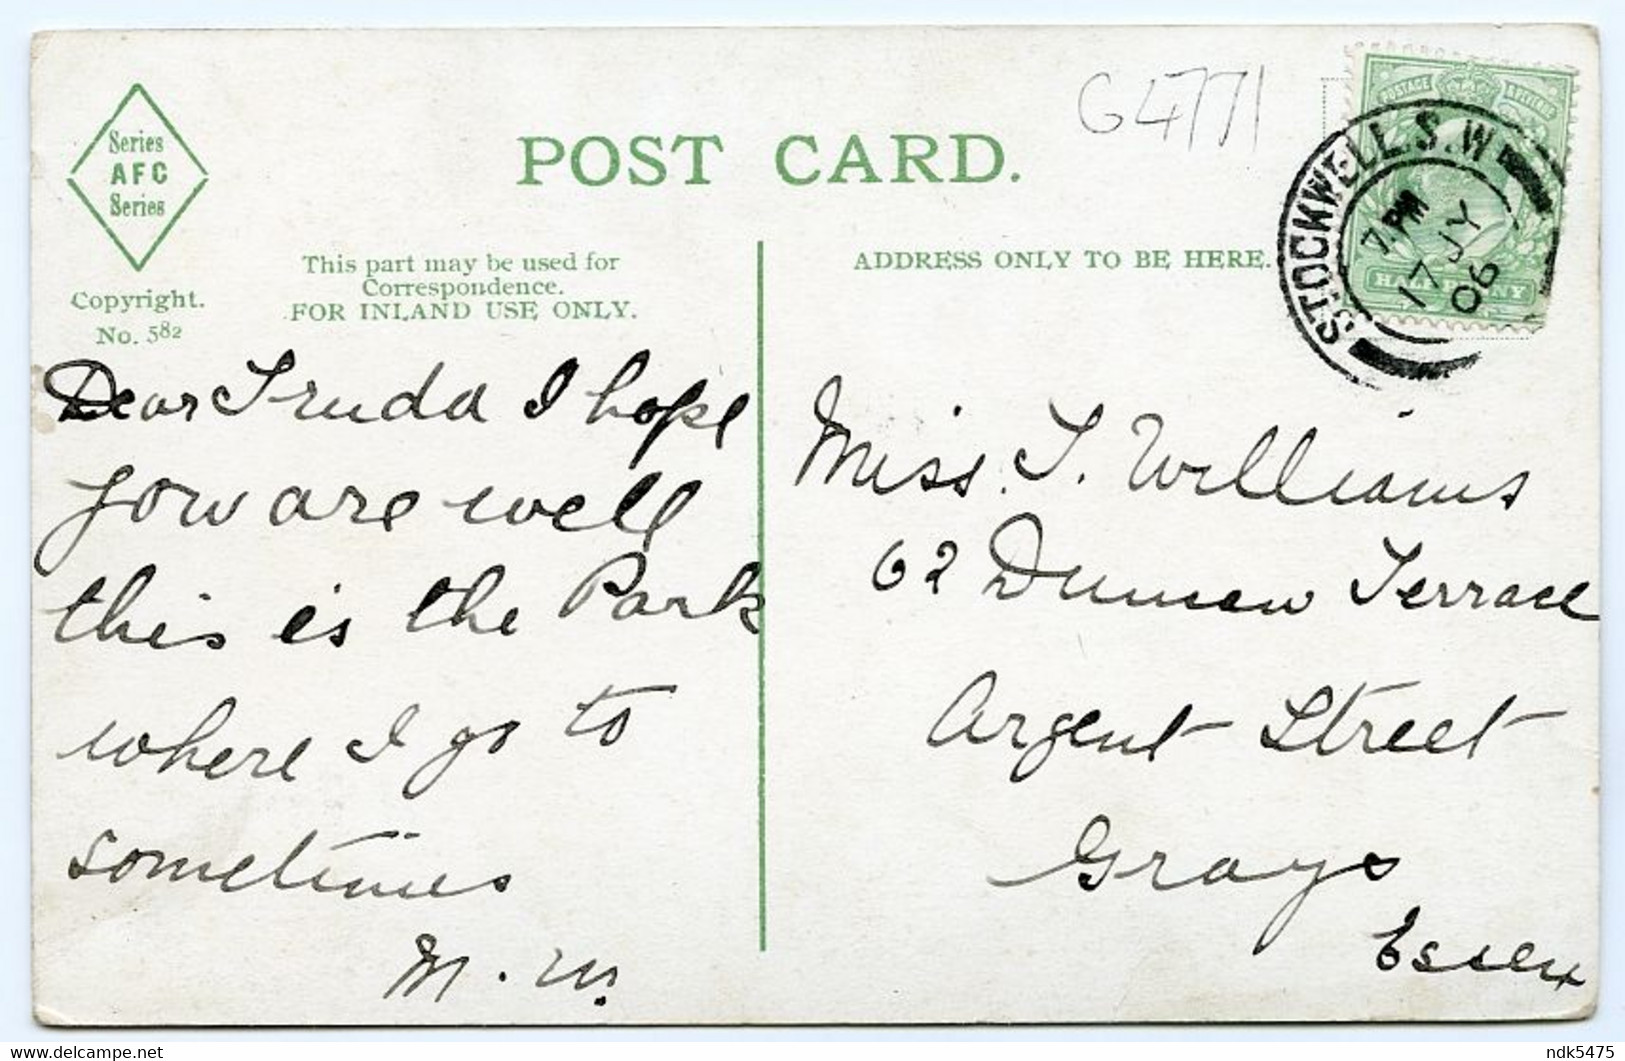 Series
AFC
Series
Copyright.
No. 582
POST CARD.
G4771
This part may be used for
Correspondence.
FOR INLAND USE ONLY.
ADDRESS ONLY TO BE HERE.
POSTAGE & REVENUE
HALF PENNY
STOCKWELL.S.W
7 PM
17 JY
06
Dear Truda I hope
you are well
this is the Park
where I go to
sometimes
M. W.
Miss. T. Williams
62 Duncan Terrace
Argent Street
Grays
Essex
delcampe.net
ndk5475